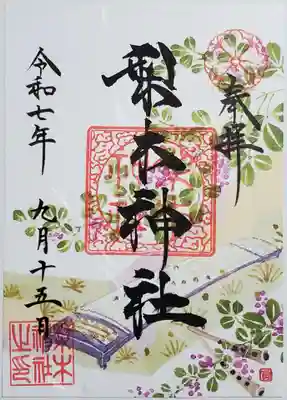 奉拝
梨木神社
令和七年 九月十五日
梨木
神社
之印